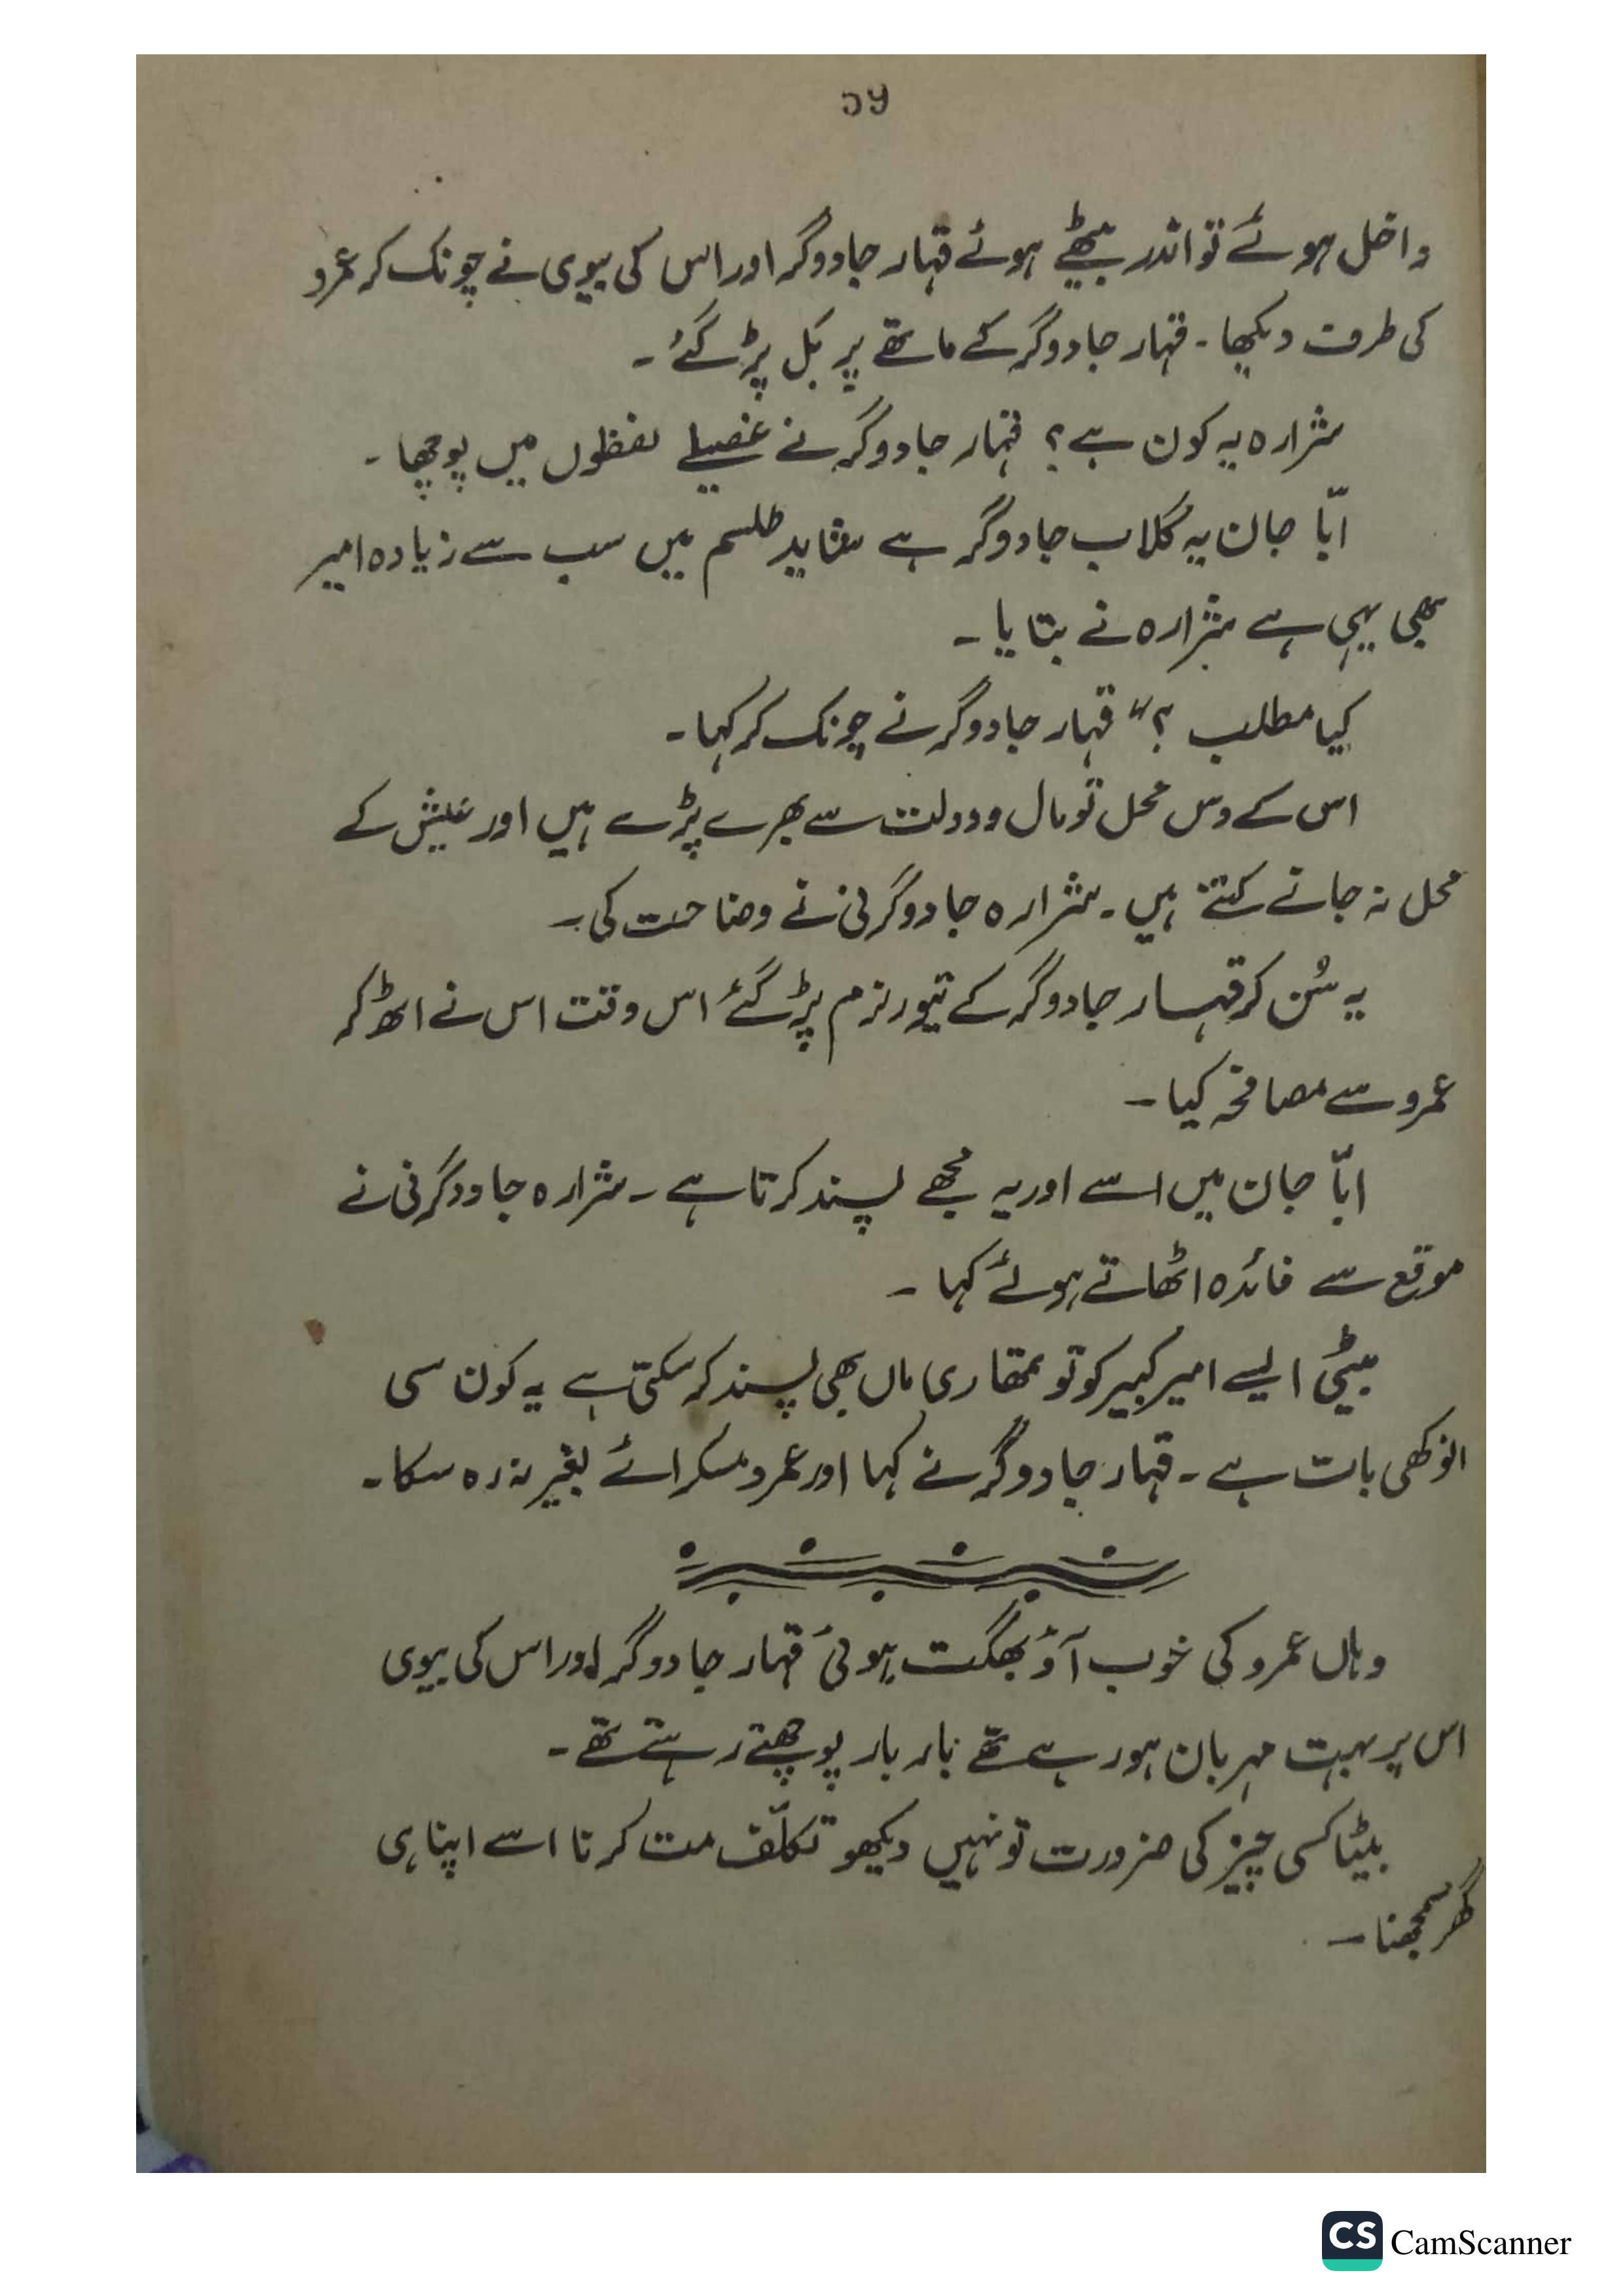 ۵۶
داخل ہوئے تو اندر بیٹھے ہوئے قہار جادوگر اور اس کی بیوی نے چونک کر عمرو
کی طرف دیکھا۔ قہار جادوگر کے ماتھے پر بَل پڑ گئے۔
شرارہ یہ کون ہے؟ قہار جادوگر نے غصیلے لفظوں میں پوچھا۔
ابّا جان یہ گلاب جادوگر ہے شاید طلسم میں سب سے زیادہ امیر
بھی یہی ہے شرارہ نے بتایا۔
کیا مطلب ؟“ قہار جادوگر نے چونک کر کہا۔
اس کے دس محل تو مال و دولت سے بھرے پڑے ہیں اور عیش کے
محل نہ جانے کتنے ہیں۔ شرارہ جادوگرنی نے وضاحت کی۔
یہ سُن کر قہار جادوگر کے تیور نرم پڑ گئے اس وقت اس نے اٹھ کر
عمرو سے مصافحہ کیا۔
ابّا جان میں اسے اور یہ مجھے پسند کرتا ہے۔ شرارہ جادوگرنی نے
موقع سے فائدہ اٹھاتے ہوئے کہا۔
بیٹی ایسے امیر کبیر کو تو تمھاری ماں بھی پسند کر سکتی ہے یہ کون سی
انوکھی بات ہے۔ قہار جادوگر نے کہا اور عمرو مسکرائے بغیر نہ رہ سکا۔
وہاں عمرو کی خوب آؤ بھگت ہوئی قہار جادوگر اور اس کی بیوی
اس پر بہت مہربان ہو رہے تھے بار بار پوچھتے رہتے تھے۔
بیٹا کسی چیز کی ضرورت تو نہیں دیکھو تکلّف مت کرنا اسے اپنا ہی
گھر سمجھنا۔
CS CamScanner